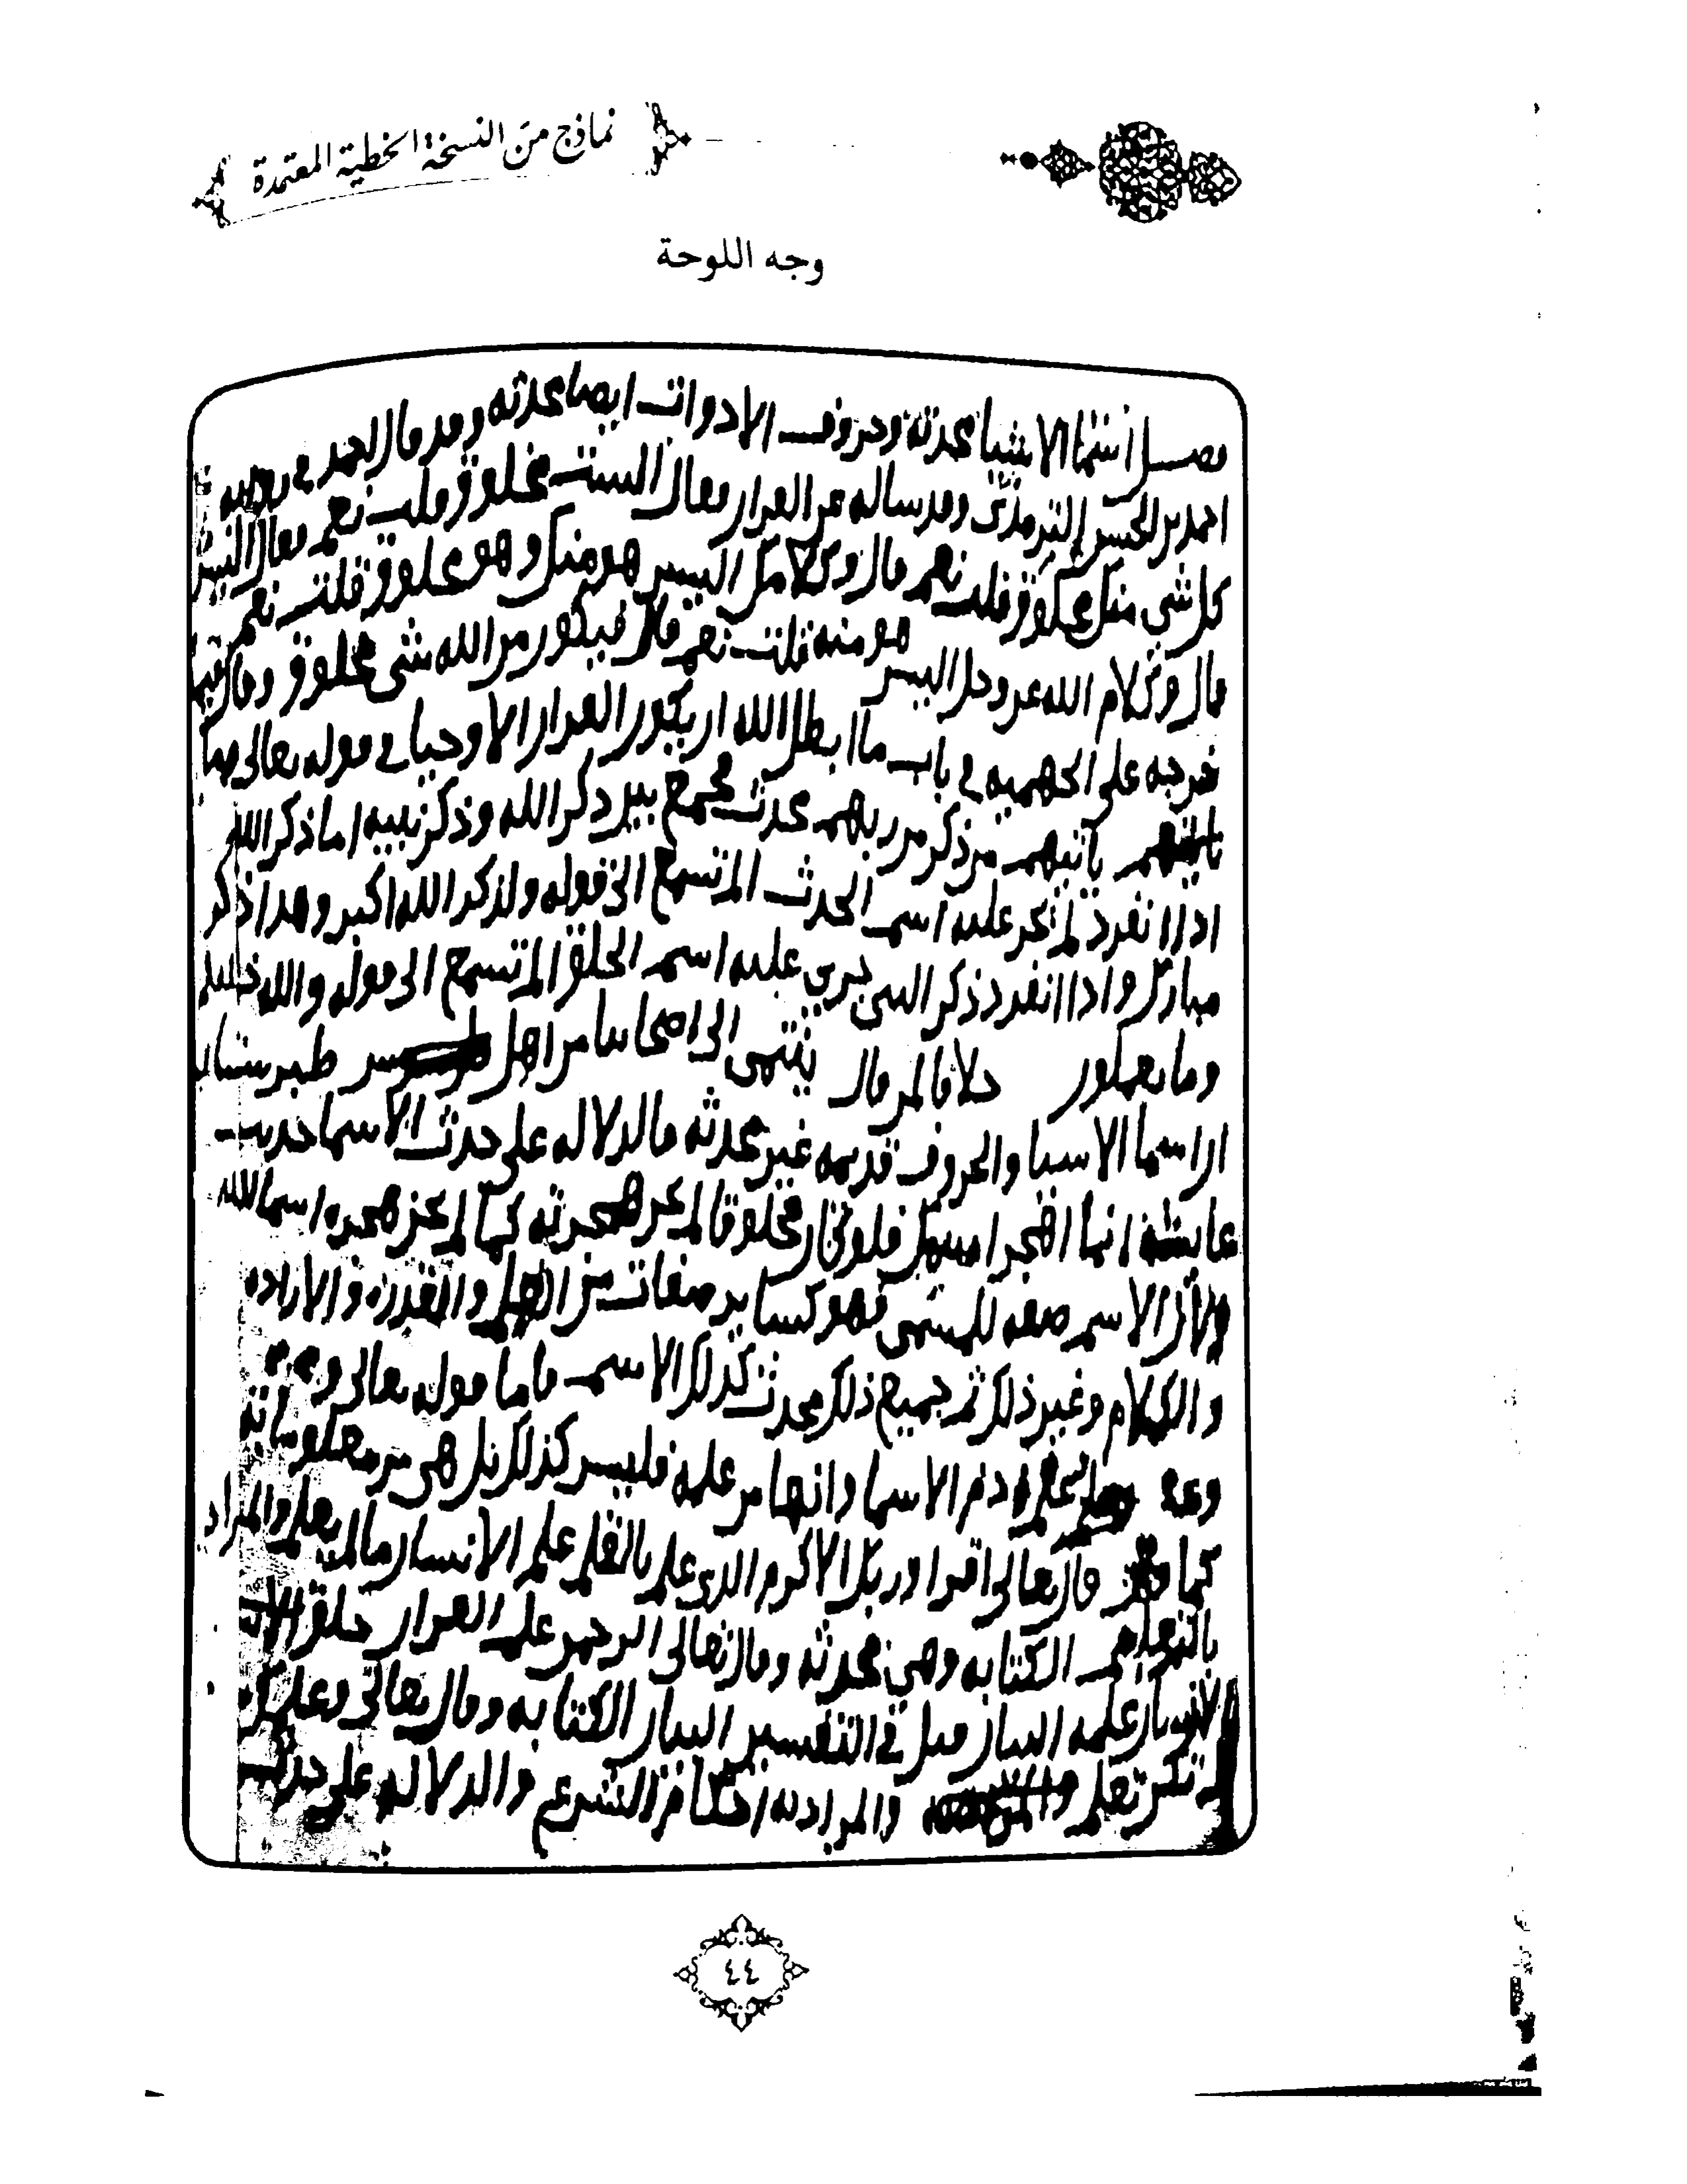 نماذج من النسخة الخطية المعتمدة
وجه اللوحة
فصل اسما الاشيا محدثة وحروف الادوات ايضا محدثه وقد قال احمد في روايه
احمد بن الحسن الترمذي وقد ساله عن القران فقال الست مخلوق قلت نعم فقال اليس
كل شي منك مخلوق قلت نعم قال وكلامك اليس هو منك وهو مخلوق قلت نعم
قال وكلام الله عز وجل اليس هو منه قلت نعم قال فيكون من الله شي مخلوق وقال فيما
خرجه على الجهميه في باب ما ابطل الله ان يكون القران الا وحيا في قوله تعالى ما
ياتيهم من ذكر من ربهم محدث مجمع بين ذكر الله وذكر نبيه اما ذكر الله
اذا انفرد لم يجر عليه اسم الحدث الم تسمع الى قوله ولذكر الله اكبر وهذا ذكر
مبارك واذا انفرد ذكر النبي جرى عليه اسم الخلق الم تسمع الى قوله والله خلقكم
وما تعملون خلافا لمن قال ينتمى الى اصحابنا من اهل طبرستان
ان اسما الاشيا والحروف قديمه غير محدثه فالدلاله على حدث الاسما حديث
عايشة انما اهجر اسمك فلو كان مخلوقا لم يجز كما لم يجز هجره اسما لله
ولان الاسم صفه للمسمى فهو كسائر صفات من العلم والقدرة والاراده
والكلام وغير ذلك ثم جميع ذلك محدث كذلك الاسم فاما قوله تعالى وعلم
ادم الاسما وانها من علمه فليس كذلك بل هي من معلوماته
كما قال تعالى اقرا وربك الاكرم الذي علم بالقلم علم الانسان ما لم يعلم والمراد
بالتعليم الكتابه وهي محدثه وقال تعالى الرحمن علم القران خلق
الانسان علمه البيان قيل في التفسير البيان الكتابه وقال تعالى وعلمك
لم تكن تعلم والمراد به احكام الشرع والدلاله على حدث
٤٤